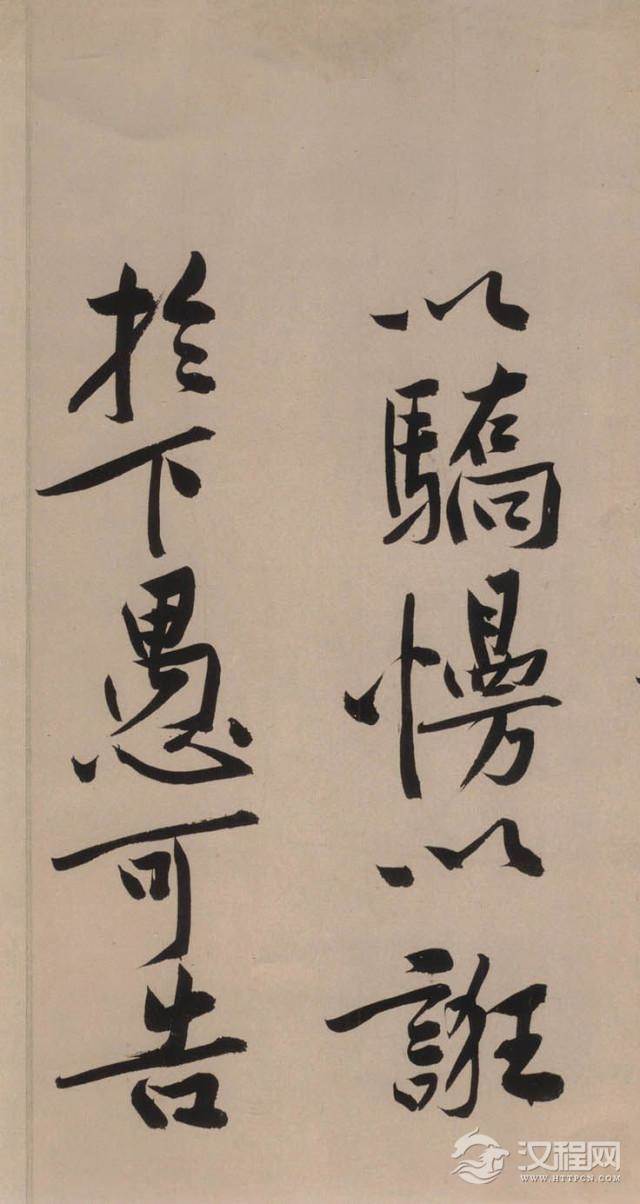 以驕慢以誑
於下愚可告
汉程网
WWW.HTTPCN.COM